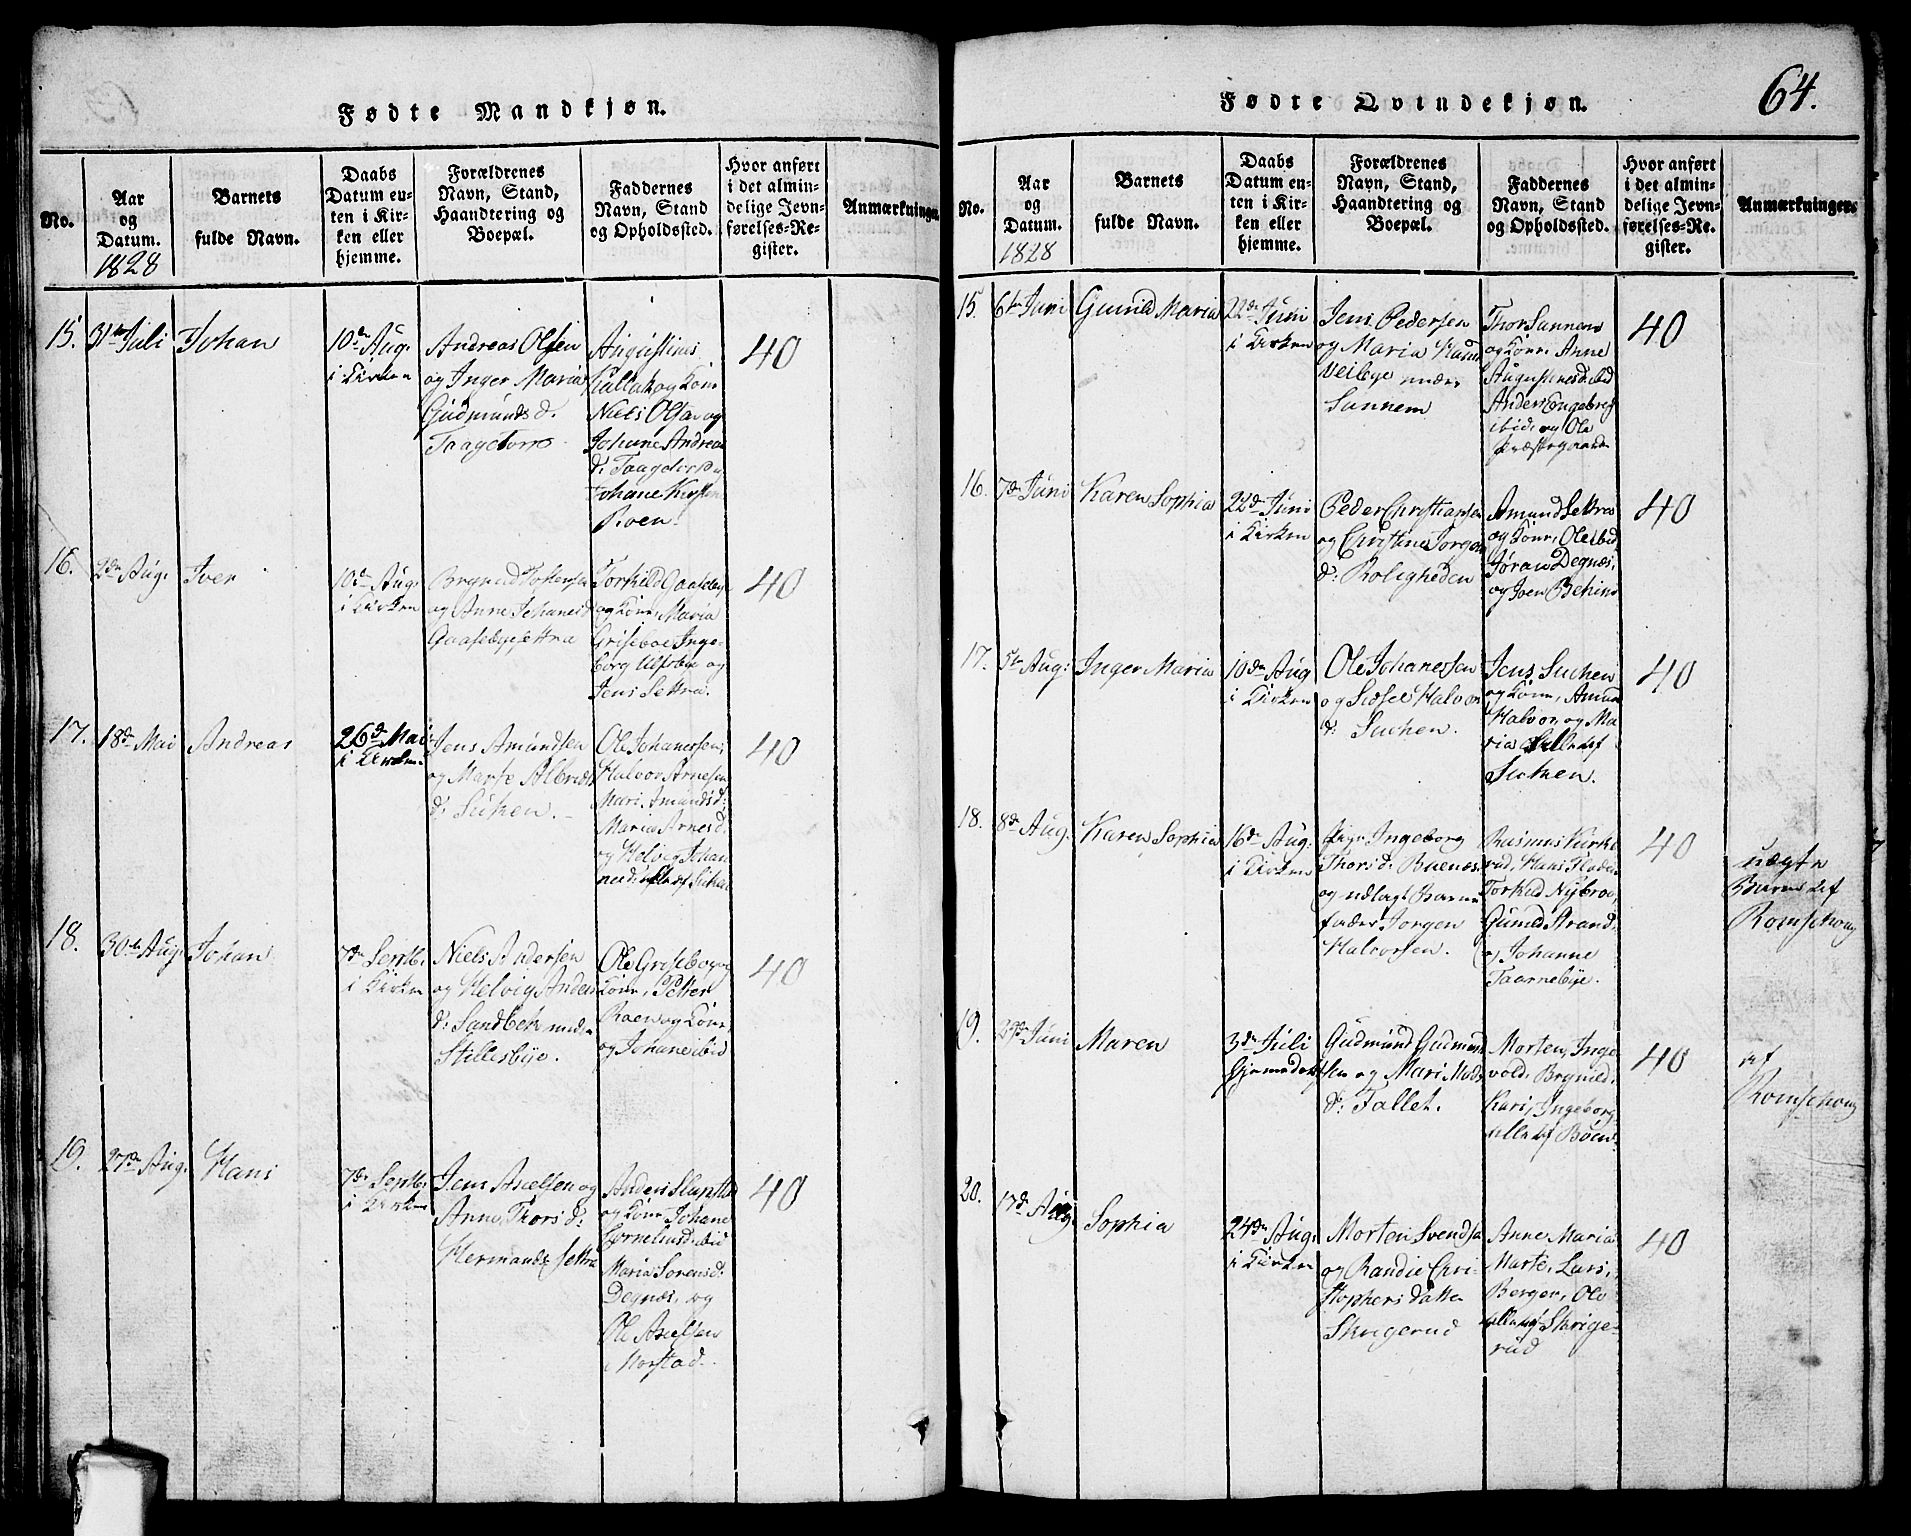 Fødte Mandkjøn.
No.
Aar
og
Datum.
1828
Barnets
fulde Navn.
Daabs
Datum en-
ten i Kir-
ken eller
hjemme.
Forældrenes
Navn, Stand,
Haandtering og
Boepæl.
Faddernes
Navn, Stand
og Opholdssted.
Hvor anført
i det almin-
delige Jevn-
førelses-Re-
gister.
Anmærkninger.
15.
31te Juli
Johan
10de Aug.
i Kirken
Andreas Olsen
og Inger Maria
Gudmunds d.
Taagetorp
Augustinus
og Kone
Niels Olsen og
Johane Andreas
d:
Johane
Roen.
40
16.
2den Aug:
Iver
10d Aug:
i Kirken
Johansen
og Anne Johannesd
Torkild
og Kone, Maria
Griseboe, Inge-
borg Ulfsbye og
Jens Settra.
40
17.
18d Mai
Andreas
26d Mai
i Kirken
Jens Amundsen
og Marte
d: Suchen.
Ole Johanesen,
Halvor Arnesen
Mari Amunds d:
Maria Arnes d:
og Helvig Johan
40
18.
30te Aug:
Johan
7de Septb.
i Kirken
Niels Andersen
og Helvig Anders
d: Sandbek under
Stillesbye.
Ole Grisebo og
Kone, Petter
Roen og Kone
og Johane ibid
40
19.
27de Aug:
Hans
7de Septb.
i Kirken
Jens Axelsen og
Anne Thors d:
Hermands Settra
Anders
og Kone Johane
Cornelius d. ibid
Maria Sorens d:
Degnæs, og
Ole Axelsen
Morstad.
40
64.
Fødte Qvindekjøn.
No.
Aar
og
Datum.
1828
Barnets
fulde Navn.
Daabs
Datum en-
ten i Kir-
ken eller
hjemme.
Forældrenes
Navn, Stand,
Haandtering og
Boepæl.
Faddernes
Navn, Stand
og Opholdssted.
Hvor anført
i det almin-
delige Jevn-
førelses-Re-
gister.
Anmærkninger.
15.
6te Juni
Gunild Maria
22de Juni
i Kirken
Jens Pedersen
og Maria Hans
Veibye under
Sannem
Thor Sannem
og Kone, Anne
Augustines d. ibid
Anders Engebreg
ibid: og Ole
Præstegaarden
40
16.
7de Juni
Karen Sophia
22d Juni
i Kirken
Peder Christiansen
og Christine Jørgen
d: Roligheden
Amund Settra
og Kone, Ole ibid
Jøran Degnæs,
og Iver
40
17.
5te Aug:
Inger Maria
10de Aug
i Kirken
Ole Johanessen
og Sidsel Halvor
d: Suchen.
Jens Suchen
og Kone, Amund
Halvor og Ma-
ria alle af
Suchen.
40
18.
8de Aug.
Karen Sophia
16de Aug:
i Kirken
Pige Ingeborg
Thors d:
og udlagt Barne
fader Jørgen
Halvorsen.
Rasmus Kirke
rud, Hans
Torkild Nybroe,
Gunild Strand,
og Johanne
Taarnebye.
40
uægte
Barn af
Romschoug
19.
29de Juni
Maren
3de Juli
Gudmund Gudmund
sen og Mari Mads
d: Fallet.
Morten, Inge-
vold, Brynild,
Kari, Ingeborg,
alle af Boen.
40
af
Romschoug
20.
17d Aug:
Sophia
24de Aug:
i Kirken
Morten Svendsen
og Randie Chri-
stophers datter
Skrigerud
Anne Maria
Marte, Lars,
Berger, Ole
alle af Skrige-
rud
40